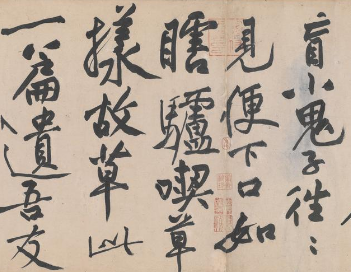 盲小鬼子往〻
見便下口如
瞎驢喫草
樣故草此
一篇遺吾友